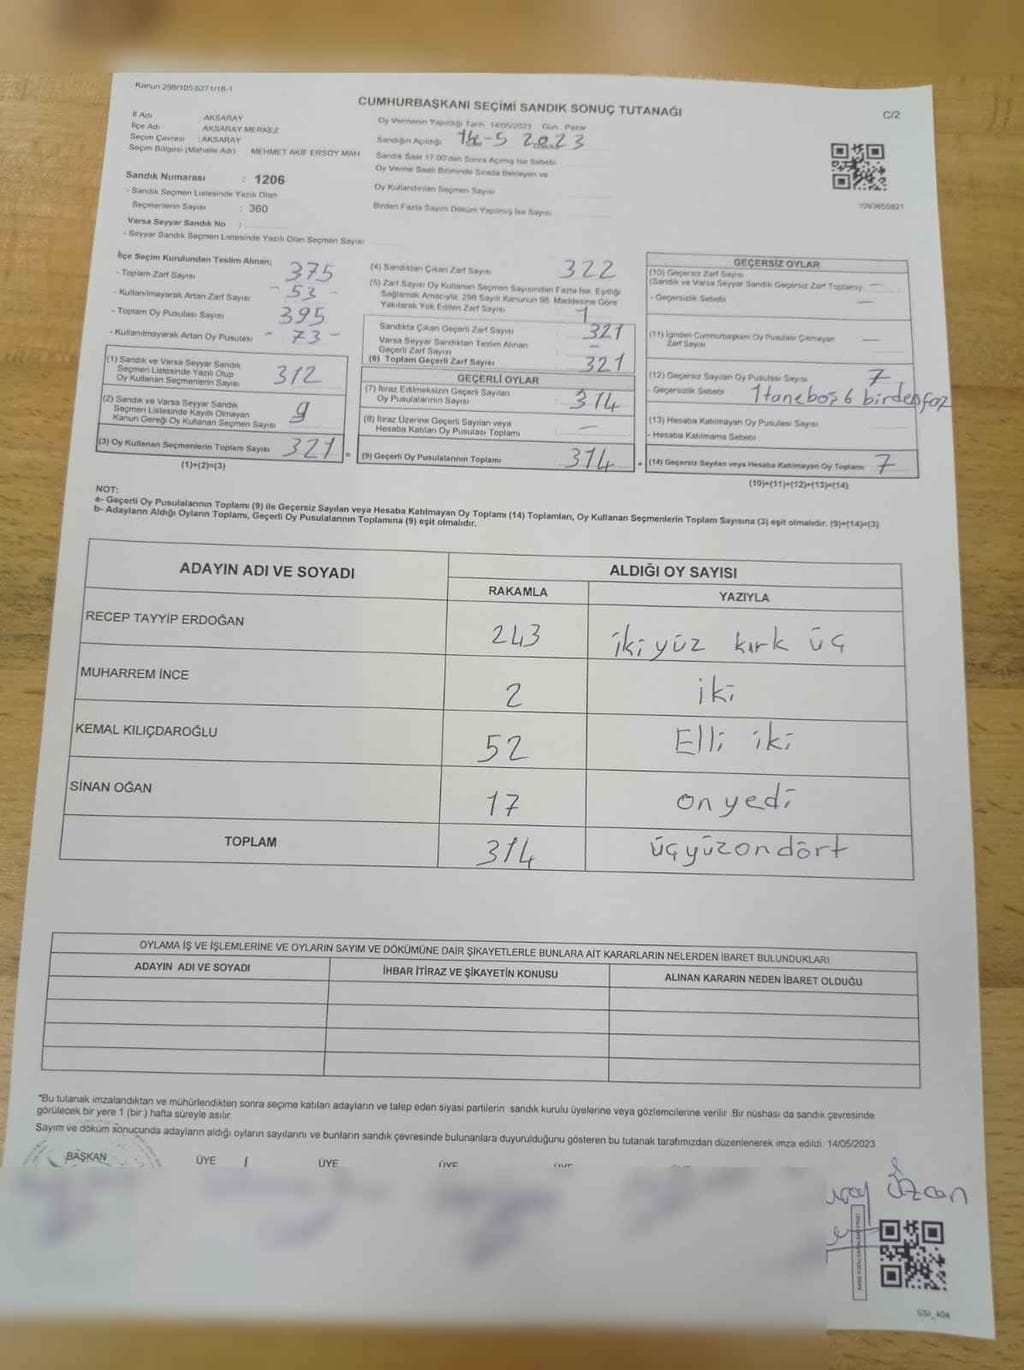 Kanun 298/105.6271/18-1
CUMHURBAŞKANI SEÇİMİ SANDIK SONUÇ TUTANAĞI
C/2
İl Adı AKSARAY
İlçe Adı AKSARAY MERKEZ
Seçim Çevresi : AKSARAY
Seçim Bölgesi (Mahalle Adı) MEHMET AKİF ERSOY MAH
Sandık Numarası : 1206
- Sandık Seçmen Listesinde Yazılı Olan
Seçmenlerin Sayısı : 360
Varsa Seyyar Sandık No :
- Seyyar Sandık Seçmen Listesinde Yazılı Olan Seçmen Sayısı
Oy Vermenin Yapıldığı Tarih 14/05/2023 Gün Pazar
Sandığın Açıldığı 14-5 2023
Sandık Saat 17.00'den Sonra Açılmış İse Sebebi
Oy Verme Saati Bitiminde Sırada Bekleyen ve
Oy Kullandırılan Seçmen Sayısı
Birden Fazla Sayım Döküm Yapılmış İse Sayısı
İlçe Seçim Kurulundan Teslim Alınan;
- Toplam Zarf Sayısı 375
- Kullanılmayarak Artan Zarf Sayısı - 53 -
- Toplam Oy Pusulası Sayısı 395
- Kullanılmayarak Artan Oy Pusulası - 73 -
(1) Sandık ve Varsa Seyyar Sandık
Seçmen Listesinde Yazılı Olup
Oy Kullanan Seçmenlerin Sayısı 312
(2) Sandık ve Varsa Seyyar Sandık
Seçmen Listesinde Kayıtlı Olmayan
Kanun Gereği Oy Kullanan Seçmen Sayısı 9
(3) Oy Kullanan Seçmenlerin Toplam Sayısı 321 =
(1)+(2)=(3)
(4) Sandıktan Çıkan Zarf Sayısı 322
(5) Zarf Sayısı Oy Kullanan Seçmen Sayısından Fazla İse, Eşitliği
Sağlamak Amacıyla; 298 Sayılı Kanunun 98. Maddesine Göre
Yakılarak Yok Edilen Zarf Sayısı 1
Sandıkta Çıkan Geçerli Zarf Sayısı 321
Varsa Seyyar Sandıktan Teslim Alınan
Geçerli Zarf Sayısı -
(6) Toplam Geçerli Zarf Sayısı 321
GEÇERLİ OYLAR
(7) İtiraz Edilmeksizin Geçerli Sayılan
Oy Pusulalarının Sayısı 314
(8) İtiraz Üzerine Geçerli Sayılan veya
Hesaba Katılan Oy Pusulası Toplamı -
(9) Geçerli Oy Pusulalarının Toplamı 314 +
GEÇERSİZ OYLAR
(10) Geçersiz Zarf Sayısı
(Sandık ve Varsa Seyyar Sandık Geçersiz Zarf Toplamı) -
- Geçersizlik Sebebi -
(11) İçinden Cumhurbaşkanı Oy Pusulası Çıkmayan
Zarf Sayısı -
(12) Geçersiz Sayılan Oy Pusulası Sayısı 7
- Geçersizlik Sebebi 1 tane boş 6 birden faz
(13) Hesaba Katılmayan Oy Pusulası Sayısı
- Hesaba Katılmama Sebebi
(14) Geçersiz Sayılan veya Hesaba Katılmayan Oy Toplamı 7
(10)+(11)+(12)+(13)=(14)
NOT:
a- Geçerli Oy Pusulalarının Toplamı (9) ile Geçersiz Sayılan veya Hesaba Katılmayan Oy Toplamı (14) Toplamları, Oy Kullanan Seçmenlerin Toplam Sayısına (3) eşit olmalıdır. (9)+(14)=(3)
b- Adayların Aldığı Oyların Toplamı, Geçerli Oy Pusulalarının Toplamına (9) eşit olmalıdır.
ADAYIN ADI VE SOYADI
ALDIĞI OY SAYISI
RAKAMLA YAZIYLA
RECEP TAYYİP ERDOĞAN 243 iki yüz kırk üç
MUHARREM İNCE 2 iki
KEMAL KILIÇDAROĞLU 52 Elli iki
SİNAN OĞAN 17 on yedi
TOPLAM 314 üçyüzondört
OYLAMA İŞ VE İŞLEMLERİNE VE OYLARIN SAYIM VE DÖKÜMÜNE DAİR ŞİKAYETLERLE BUNLARA AİT KARARLARIN NELERDEN İBARET BULUNDUKLARI
ADAYIN ADI VE SOYADI İHBAR İTİRAZ VE ŞİKAYETİN KONUSU ALINAN KARARIN NEDEN İBARET OLDUĞU
*Bu tutanak imzalandıktan ve mühürlendikten sonra seçime katılan adayların ve talep eden siyasi partilerin sandık kurulu üyelerine veya gözlemcilerine verilir. Bir nüshası da sandık çevresinde
görülecek bir yere 1 (bir) hafta süreyle asılır.
Sayım ve döküm sonucunda adayların aldığı oyların sayılarını ve bunların sandık çevresinde bulunanlara duyurulduğunu gösteren bu tutanak tarafımızdan düzenlenerek imza edildi. 14/05/2023
BAŞKAN ÜYE ÜYE ÜYE
Özcan
SSI_404